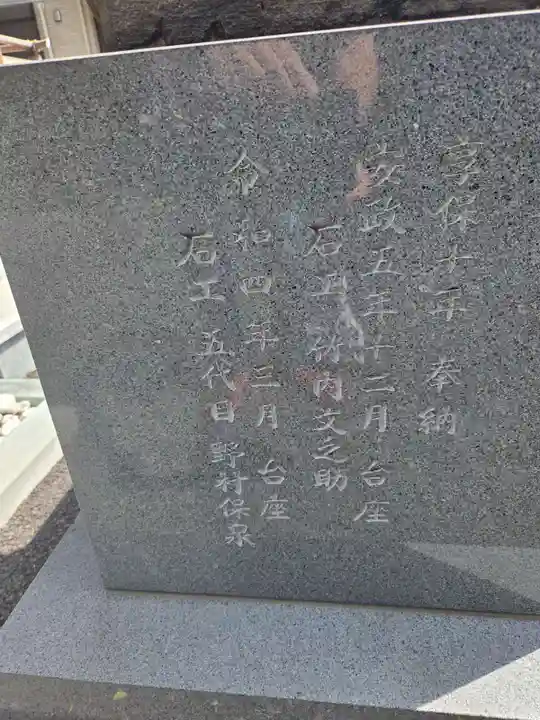 享保十年 奉納
安政五年十二月 台座
石工 竹内文之助
令和四年三月 台座
石工 五代目 野村保泉